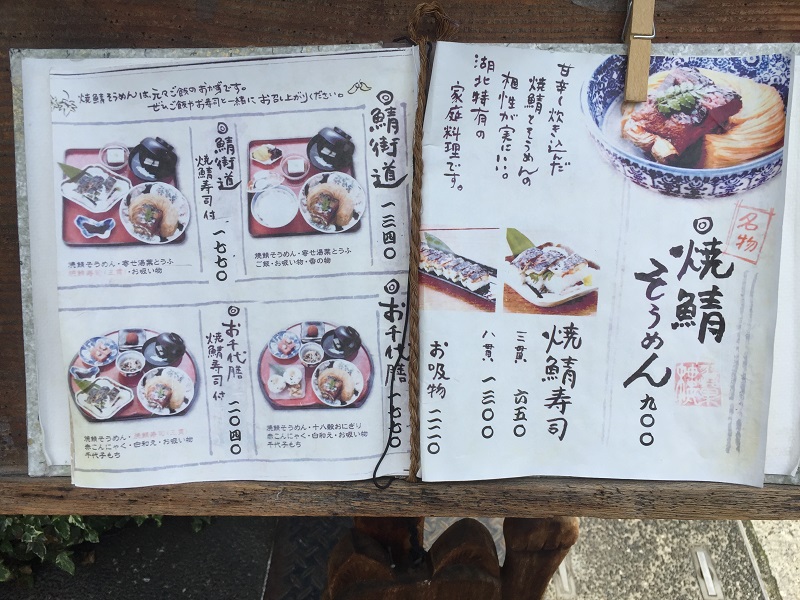 名物
焼鯖
そうめん 九〇〇
甘辛く炊き込んだ
焼鯖とそうめんの
相性が実にいい。
湖北特有の
家庭料理です。
焼鯖寿司
三貫 六五〇
八貫 一三〇〇
お吸物 一二〇
焼鯖そうめんは、元々ご飯のおかずです。
ぜひご飯やお寿司と一緒にお召し上がりください。
鯖街道 一三四〇
焼鯖そうめん・寄せ湯葉とうふ
ご飯・お吸い物・香の物
鯖街道
焼鯖寿司付 一七七〇
焼鯖そうめん・寄せ湯葉とうふ
焼鯖寿司・三貫・お吸い物
お千代膳 一七七〇
焼鯖そうめん・十八穀おにぎり
赤こんにゃく・白和え・お吸い物
千代子もち
お千代膳
焼鯖寿司付 二〇四〇
焼鯖そうめん・焼鯖寿司・三貫
赤こんにゃく・白和え・お吸い物
千代子もち